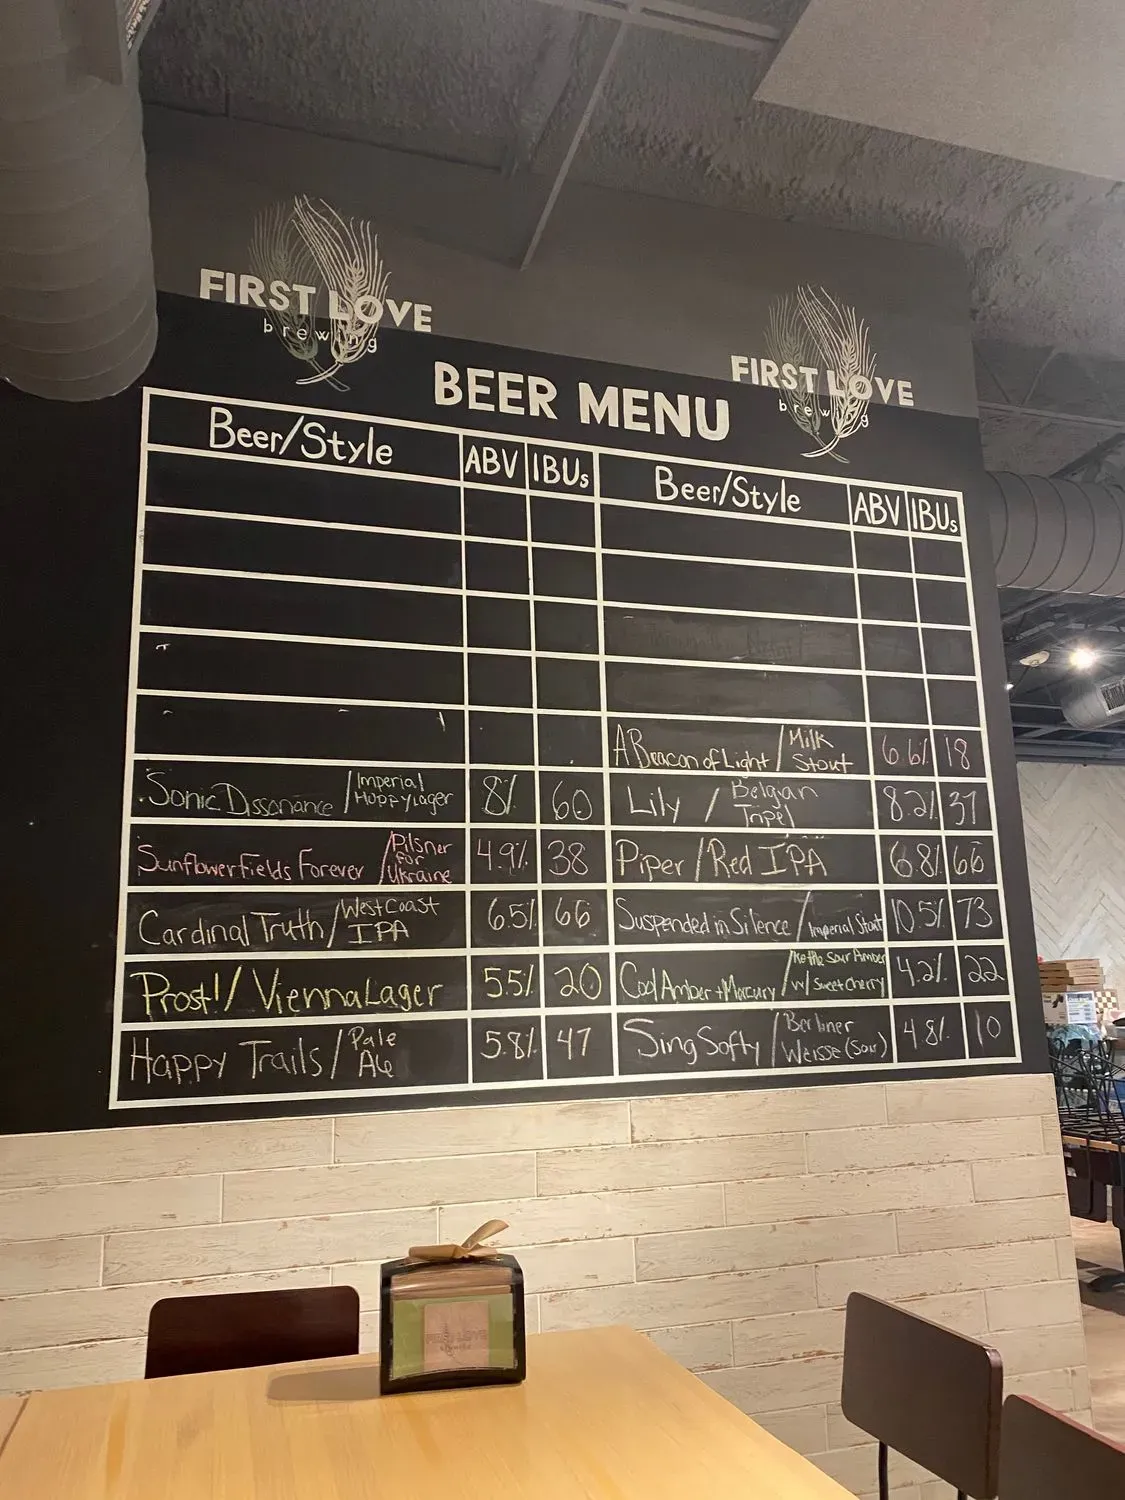 FIRST LOVE
brewing
FIRST LOVE
brewing
BEER MENU
Beer/Style ABV IBUs
Sonic Dissonance / Imperial Hoppy Lager 8% 60
Sunflower Fields Forever / Pilsner for Ukraine 4.9% 38
Cardinal Truth / West Coast IPA 6.5% 66
Prost! / Vienna Lager 5.5% 20
Happy Trails / Pale Ale 5.8% 47
Beer/Style ABV IBUs
A Beacon of Light / Milk Stout 6.6% 18
Lily / Belgian Tripel 8.2% 37
Piper / Red IPA 6.8% 66
Suspended in Silence / Imperial Stout 10.5% 73
Cool Amber + Mercury / Kettle Sour Amber w/ Sweet Cherry 4.2% 22
Sing Softly / Berliner Weisse (Sour) 4.8% 10
FIRST LOVE
brewing